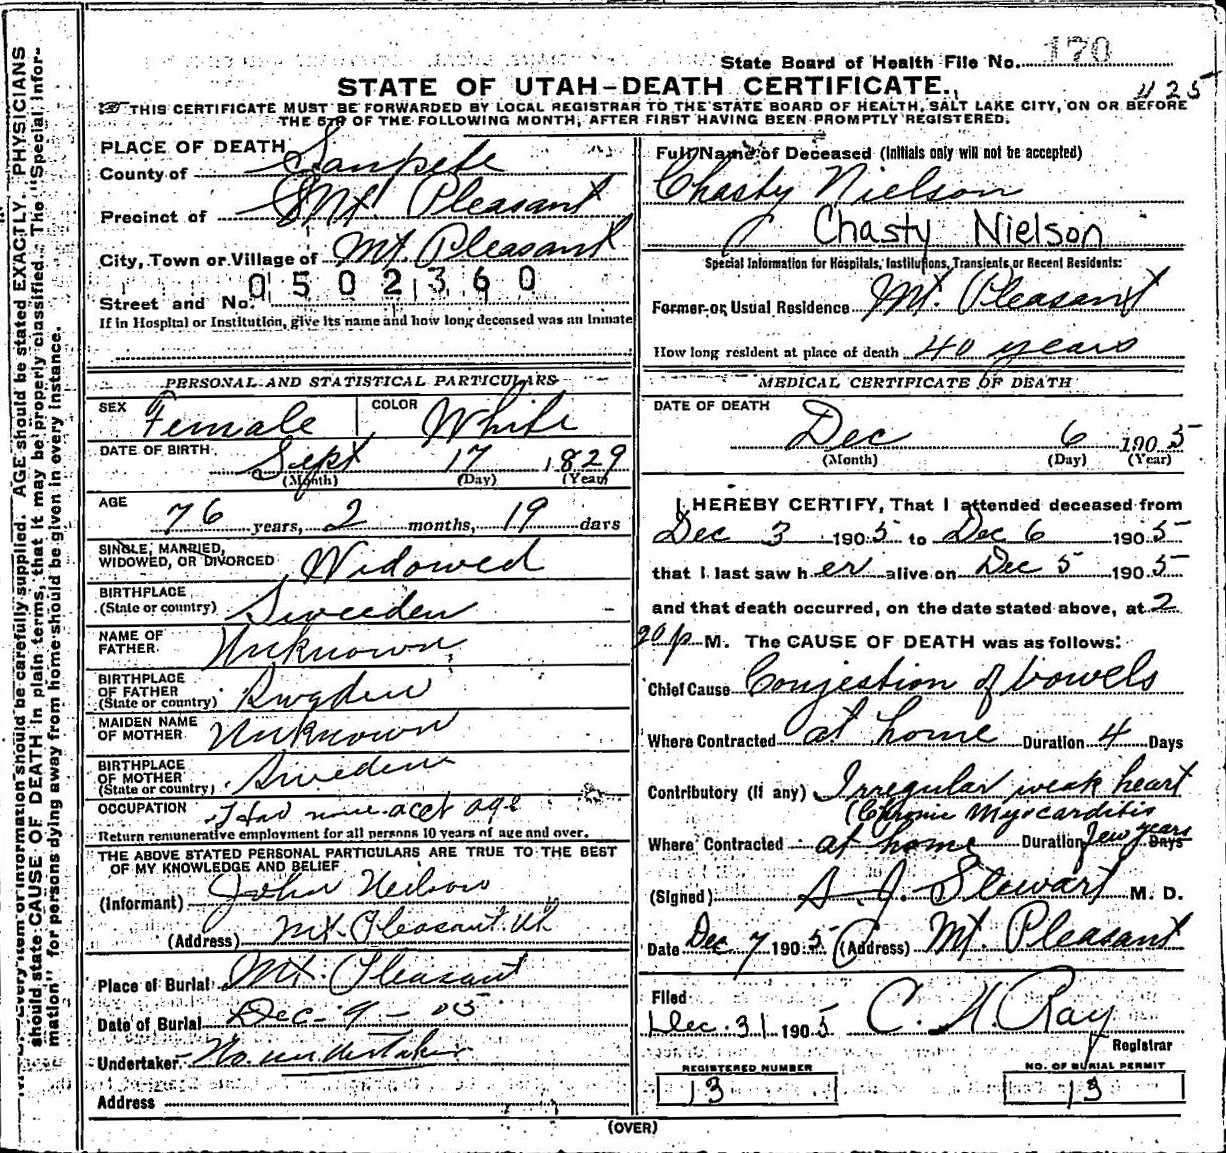 State Board of Health File No. 170
STATE OF UTAH—DEATH CERTIFICATE.
425
THIS CERTIFICATE MUST BE FORWARDED BY LOCAL REGISTRAR TO THE STATE BOARD OF HEALTH, SALT LAKE CITY, ON OR BEFORE
THE 5TH OF THE FOLLOWING MONTH, AFTER FIRST HAVING BEEN PROMPTLY REGISTERED.
PLACE OF DEATH
County of Sanpete
Precinct of Mt. Pleasant
City, Town or Village of Mt. Pleasant
0502360
Street and No.
If in Hospital or Institution, give its name and how long deceased was an inmate
Full Name of Deceased (Initials only will not be accepted)
Chasty Nielson
Chasty Nielson
Special Information for Hospitals, Institutions, Transients or Recent Residents:
Former or Usual Residence Mt. Pleasant
How long resident at place of death 40 years
PERSONAL AND STATISTICAL PARTICULARS
SEX Female COLOR White
DATE OF BIRTH Sept 17 1829
(Month) (Day) (Year)
AGE 76 years, 2 months, 19 days
SINGLE, MARRIED,
WIDOWED, OR DIVORCED Widowed
BIRTHPLACE
(State or country) Sweeden
NAME OF
FATHER Unknown
BIRTHPLACE
OF FATHER
(State or country)
MAIDEN NAME
OF MOTHER Unknown
BIRTHPLACE
OF MOTHER
(State or country) Sweden
OCCUPATION Had none acct age
Return remunerative employment for all persons 10 years of age and over.
THE ABOVE STATED PERSONAL PARTICULARS ARE TRUE TO THE BEST
OF MY KNOWLEDGE AND BELIEF
(Informant) John Neilson
(Address) Mt. Pleasant Ut
Place of Burial Mt. Pleasant
Date of Burial Dec - 9 - 05
Undertaker No undertaker
Address
MEDICAL CERTIFICATE OF DEATH
DATE OF DEATH
Dec 6 1905
(Month) (Day) (Year)
I HEREBY CERTIFY, That I attended deceased from
Dec 3 1905 to Dec 6 1905
that I last saw her alive on Dec 5 1905
and that death occurred, on the date stated above, at 2
20 p M. The CAUSE OF DEATH was as follows:
Chief Cause Conjestion of bowels
Where Contracted at home Duration 4 Days
Contributory (if any) Irregular weak heart
(Chronic Myocarditis
Where Contracted at home Duration few years Days
(Signed) A. J. Stewart M. D.
Date Dec 7 1905 (Address) Mt. Pleasant
Filed
Dec. 31 1905 C. H. Ray
Registrar
REGISTERED NUMBER
13
NO. OF BURIAL PERMIT
13
(OVER)
Every item of information should be carefully supplied. AGE should be stated EXACTLY. PHYSICIANS
should state CAUSE OF DEATH in plain terms, that it may be properly classified. The "Special Infor-
mation" for persons dying away from home should be given in every instance.